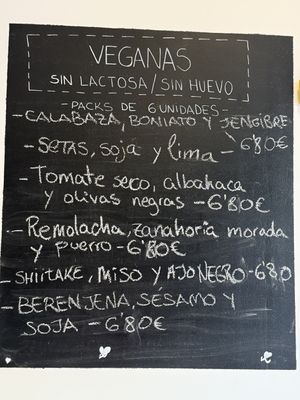 VEGANAS
SIN LACTOSA/SIN HUEVO
-PACKS DE 6 UNIDADES-
-CALABAZA, BONIATO Y JENGIBRE
- 6'80€
-SETAS, SOJA y lima
-Tomate seco, albahaca
y olivas negras -6'80€
-Remolacha, zanahoria morada
y puerro-6'80€
-SHIITAKE, MISO Y AJO NEGRO-6'80
-BERENJENA, SÉSAMO Y
SOJA -6'80€